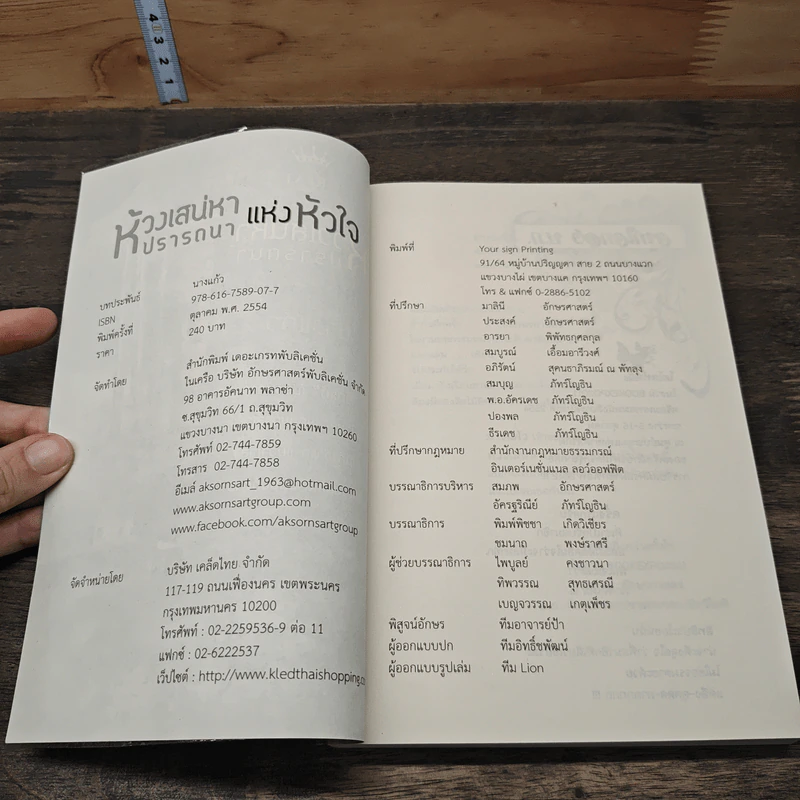 ห้วงเสน่หา
ปรารถนา แห่ง หัวใจ
บทประพันธ์ นางแก้ว
ISBN 978-616-7589-07-7
พิมพ์ครั้งที่ ตุลาคม พ.ศ. 2554
ราคา 240 บาท
จัดทำโดย สำนักพิมพ์ เดอะเกรทพับลิเคชั่น
ในเครือ บริษัท อักษรศาสตร์พับลิเคชั่น จำกัด
98 อาคารอัคนาท พลาซ่า
ซ.สุขุมวิท 66/1 ถ.สุขุมวิท
แขวงบางนา เขตบางนา กรุงเทพฯ 10260
โทรศัพท์ 02-744-7859
โทรสาร 02-744-7858
อีเมล์ aksornsart_1963@hotmail.com
www.aksornsartgroup.com
www.facebook.com/aksornsartgroup
จัดจำหน่ายโดย บริษัท เคล็ดไทย จำกัด
117-119 ถนนเฟื่องนคร เขตพระนคร
กรุงเทพมหานคร 10200
โทรศัพท์ : 02-2259536-9 ต่อ 11
แฟกซ์ : 02-6222537
เว็ปไซต์ : http://www.kledthaishopping.c
พิมพ์ที่ Your sign Printing
91/64 หมู่บ้านปริญญดา สาย 2 ถนนบางแวก
แขวงบางไผ่ เขตบางแค กรุงเทพฯ 10160
โทร & แฟกซ์ 0-2886-5102
ที่ปรึกษา มาลินี อักษรศาสตร์
ประสงค์ อักษรศาสตร์
อารยา พิพัทธกุศลกุล
สมบูรณ์ เอื้อมอารีวงศ์
อภิรัตน์ สุคนธาภิรมณ์ ณ พัทลุง
สมบุญ ภัทร์โญธิน
พ.อ.อัครเดช ภัทร์โญธิน
ปองพล ภัทร์โญธิน
ธีรเดช ภัทร์โญธิน
ที่ปรึกษากฎหมาย สำนักงานกฎหมายธรรมกรณ์
อินเตอร์เนชั่นแนล ลอว์ออฟฟิต
บรรณาธิการบริหาร สมภพ อักษรศาสตร์
อัครฐริณีย์ ภัทร์โญธิน
บรรณาธิการ พิมพ์พิชชา เกิดวิเชียร
ชมนาถ พงษ์ราศรี
ผู้ช่วยบรรณาธิการ ไพบูลย์ คงชาวนา
ทิพวรรณ สุทธเศรณี
เบญจวรรณ เกตุเพ็ชร
พิสูจน์อักษร ทีมอาจารย์ป้า
ผู้ออกแบบปก ทีมอิทธิ์ชพัฒน์
ผู้ออกแบบรูปเล่ม ทีม Lion
4 3 2 1